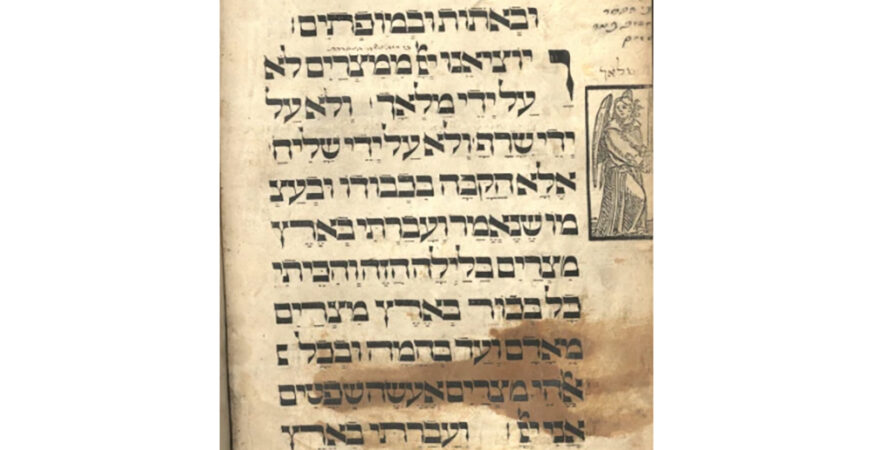 ובאתות ובמופתים׃
ויוציאנו יי ממצרים לא
על ידי מלאך ולא על
ידי שרף ולא על ידי שליח
אלא הקבה בכבודו ובעצ
מו שנאמר ועברתי בארץ
מצרים בלילה הזה והכיתי
כל בכור בארץ מצרים
מאדם ועד בהמה ובכל
אלהי מצרים אעשה שפטים
אני יי ועברתי בארץ
מלאך